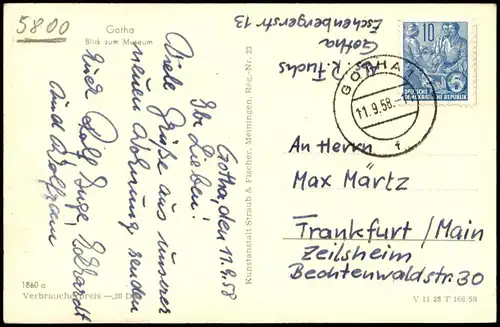 5800
Gotha
Blick zum Museum
Gotha, den 11.9.58
Ihr Lieben!
Viele Grüße aus unserer
neuen Wohnung senden
Euch Rolf, Inge, Eckhardt
und Wolfram
1860 a
Verbraucherpreis —,20 D
Kunstanstalt Straub & Fischer, Meiningen. Reg.-Nr. 23
A. R. Fuchs
Gotha
Eschenbergerstr 13
10
DEUTSCHE
DEMOKRATISCHE REPUBLIK
GOTHA
11.9.58.
f
An Herrn
Max Märtz
Frankfurt/Main
Zeilsheim
Bechtenwaldstr. 30
V 11 28 T 166/58